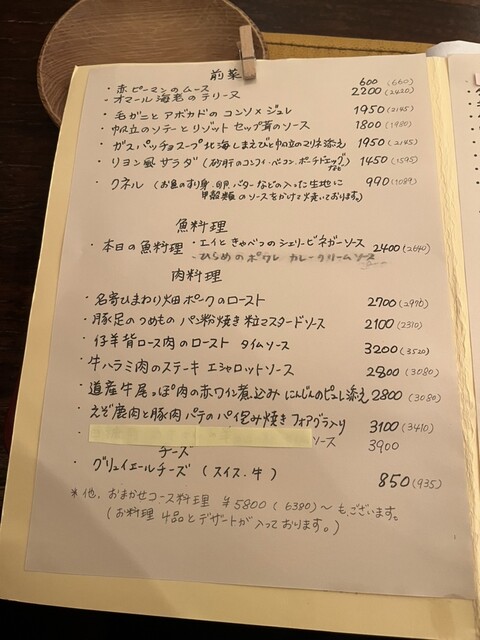 前菜
・赤ピーマンのムース 600 (660)
・オマール海老のテリーヌ 2200 (2420)
・毛ガニとアボカドのコンソメジュレ 1950 (2145)
・帆立のソテーとリゾット セップ茸のソース 1800 (1980)
・ガスパッチョスープ 北海しまえびと帆立のマリネ添え 1950 (2145)
・リヨン風サラダ (砂肝のコンフィ・ベーコン・ポーチドエッグ) 1450 (1595)
・クネル (お魚のすり身・卵・バターなどの入った生地に 990 (1089)
甲殻類のソースをかけて焼いております。)
魚料理
・本日の魚料理 ・エイときゃべつのシェリービネガーソース 2400 (2640)
・ひらめのポワレ カレークリームソース
肉料理
・名寄ひまわり畑ポークのロースト 2700 (2970)
・豚足のつめもの パン粉焼き 粒マスタードソース 2100 (2310)
・仔羊背ロース肉のロースト タイムソース 3200 (3520)
・牛ハラミ肉のステーキ エシャロットソース 2800 (3080)
・道産牛尾っぽ肉の赤ワイン煮込み にんじんのピュレ添え 2800 (3080)
・えぞ鹿肉と豚肉パテのパイ包み焼き フォアグラ入り 3100 (3410)
・ソース 3900
チーズ
・グリュイエールチーズ (スイス・牛) 850 (935)
*他、おまかせコース料理 ¥5800 (6380)～もございます。
(お料理 4品とデザートが入っております。)